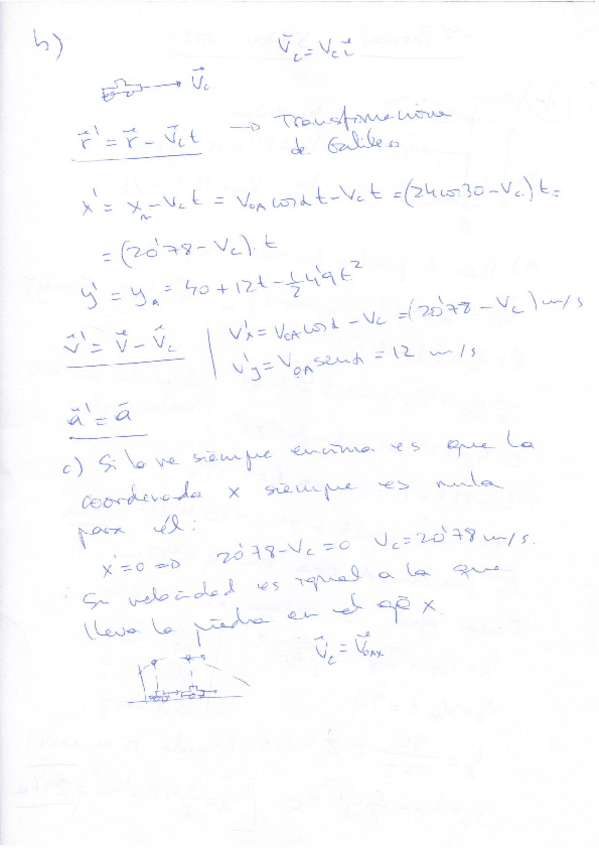 b)
v⃗c = vc i⃗
v⃗c
r⃗' = r⃗ - v⃗c t → Transformaciones
de Galileo
x' = xA - vc t = v0A cos α t - vc t = (24 cos 30 - vc) t =
= (20'78 - vc) · t
y' = yA = 40 + 12t - 1/2 4'9 t²
v⃗' = v⃗ - v⃗c | v'x = v0A cos α - vc = (20'78 - vc) m/s
v'y = v0A sen α = 12 m/s
a⃗' = a⃗
c) Si lo ve siempre encima es que la
coordenada x siempre es nula
para él:
x' = 0 ⇒ 20'78 - vc = 0 vc = 20'78 m/s.
Su velocidad es igual a la que
lleva la piedra en el eje x.
v⃗c = v⃗0Ax